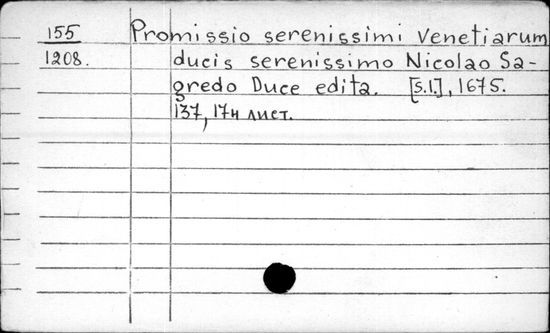 155 Promissio serenissimi Venetiarum
1208. ducis serenissimo Nicolao Sa-
gredo Duce edita. [S.l.], 1675.
137, 17н лист.